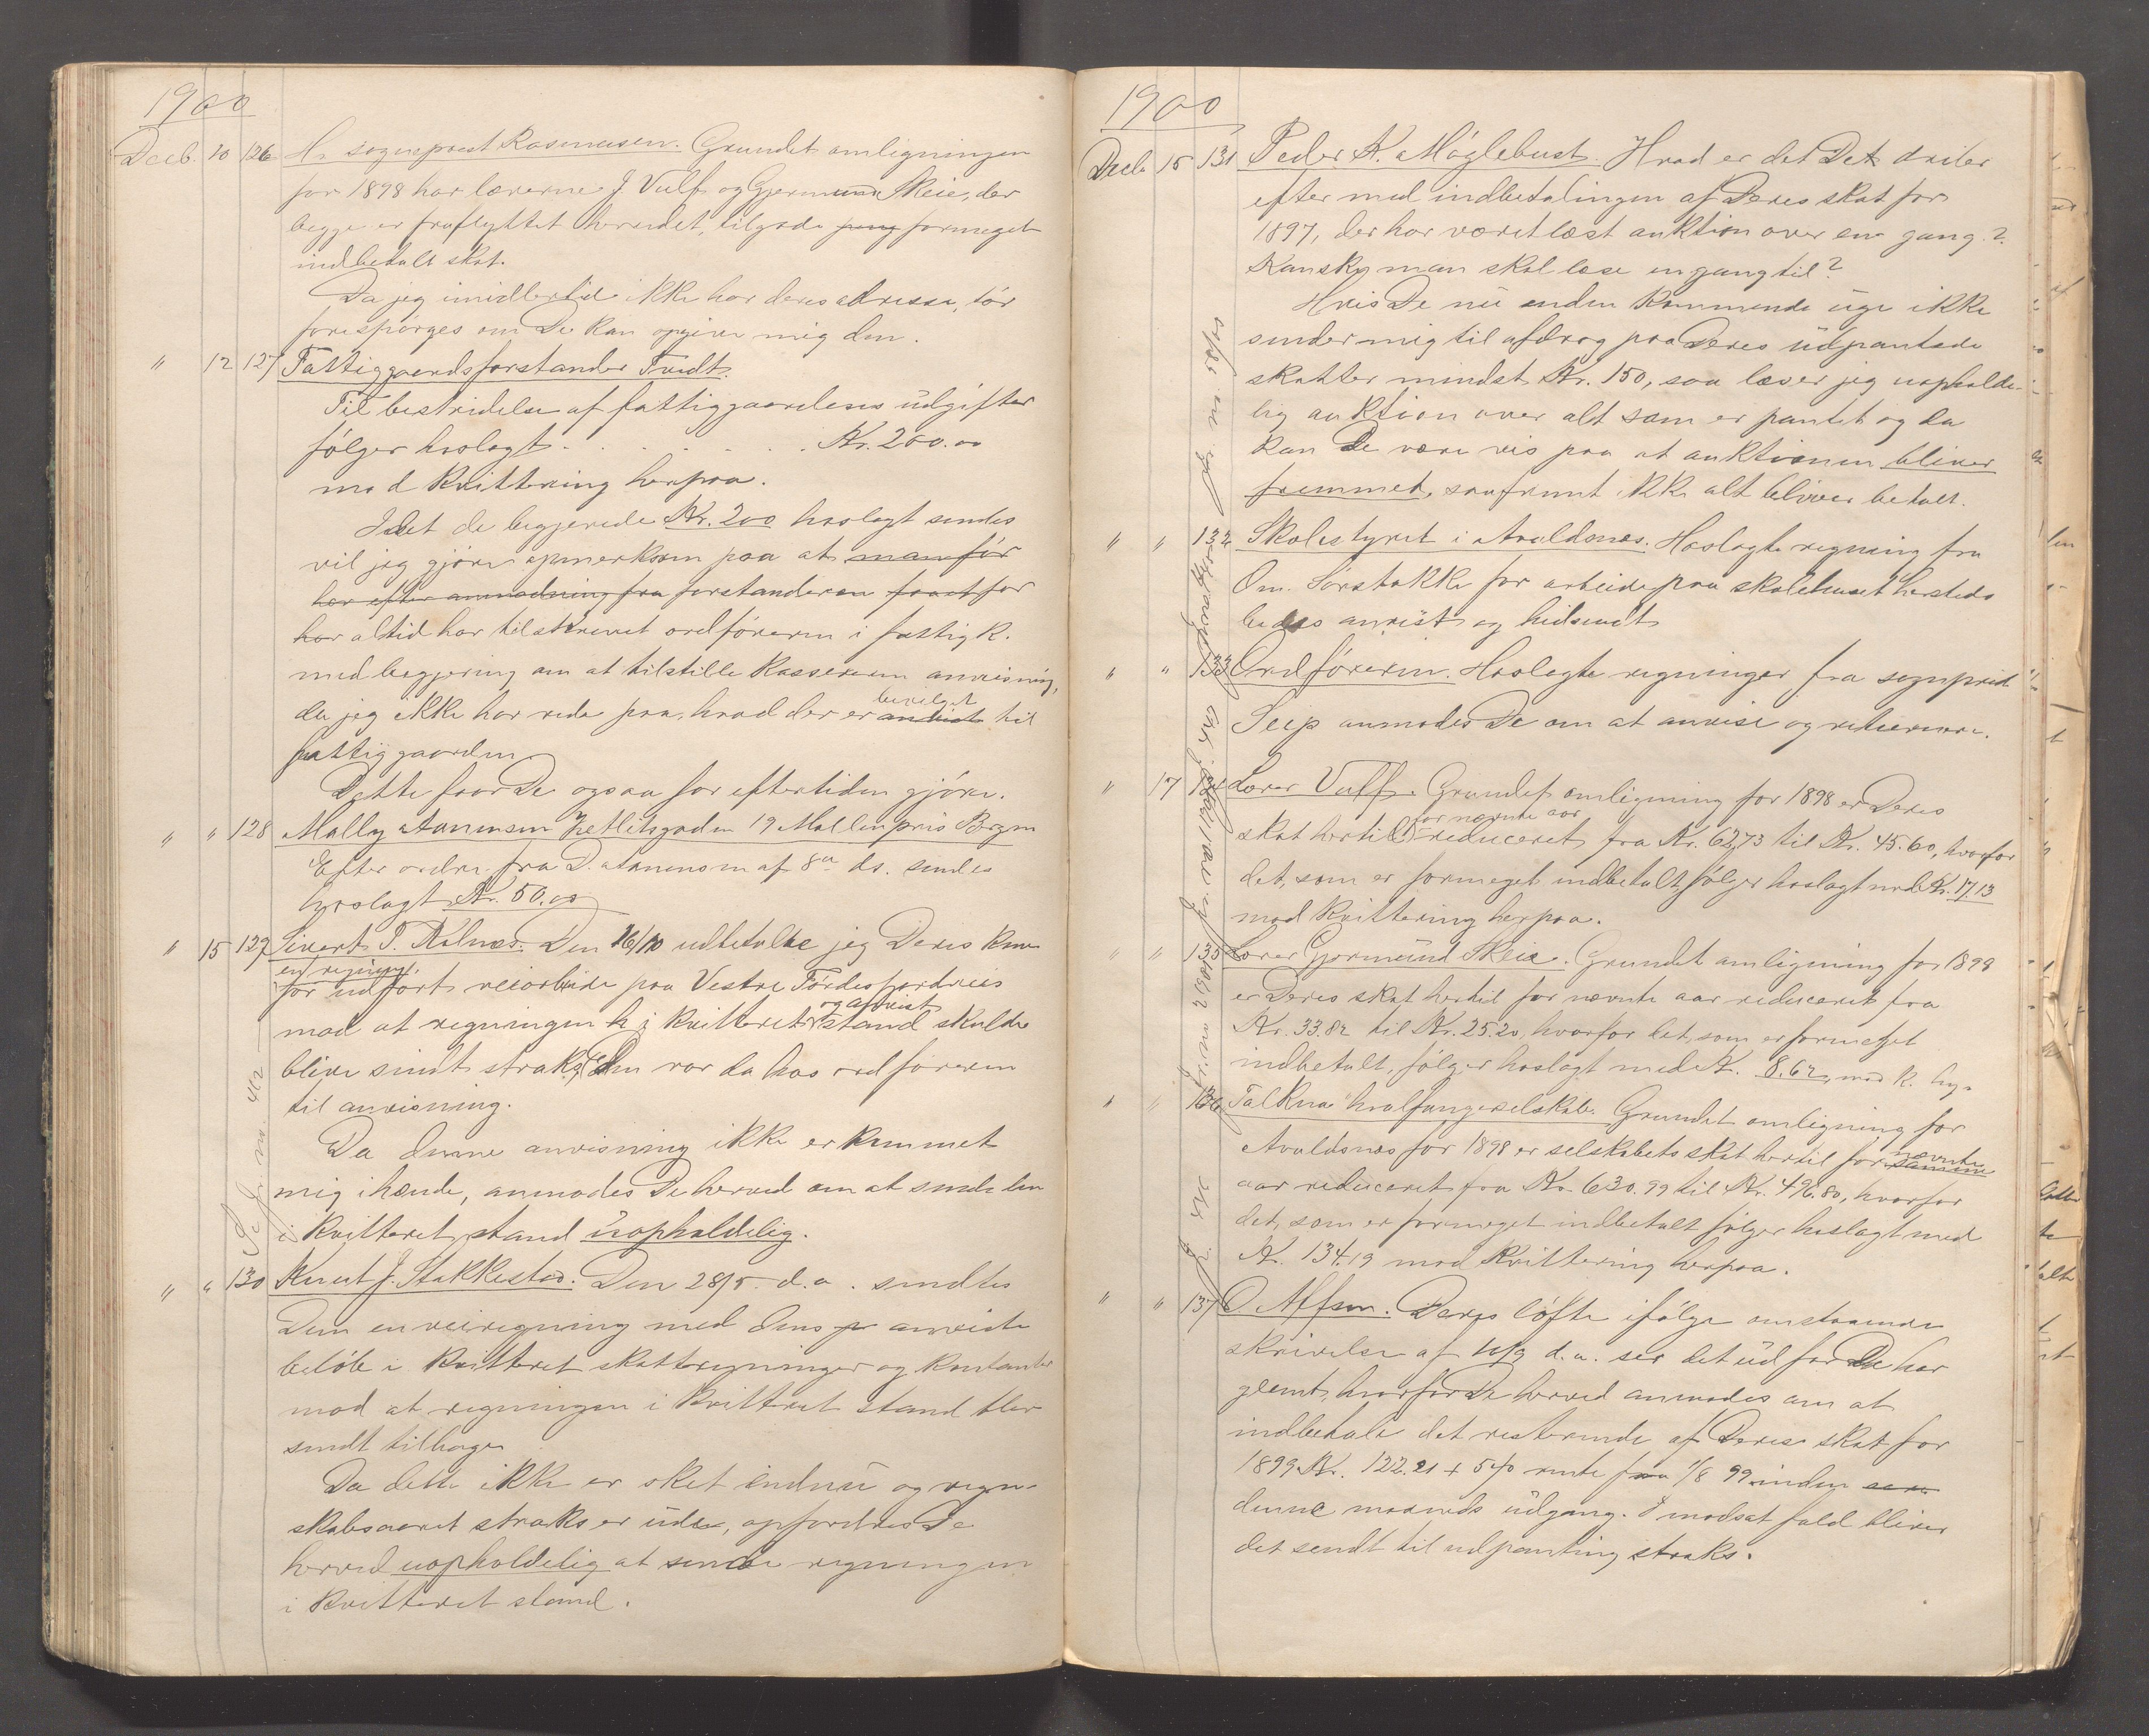 1900
Decb. 10 126 Hr sogneprest Rasmussen. Grundet omligningen
for 1898 har lærerne J. Vulf og Gjermund Skeie, der
begge er fraflyttet herredet, tilgode formeget
indbetalt skat.
Da jeg imidlertid ikke har deres adresse, tør
forespørges om De kan opgive mig den.
" 12 127 Fattiggaardsforstander Tvedt.
Til bestridelse af fattiggaardens udgifter
følger hoslagt . . . . . . Kr. 200.00
mod kvittering herpaa.
Idet de begjerede Kr. 200 hoslagt sendes
vil jeg gjøre opmerksom paa at man før
har efter anmodning fra forstanderen faaet for
har altid har tilskrevet ordføreren i fattigk.
med begjering om at tilstille kassereren anvisning,
bevilget
da jeg ikke har rede paa, hvad der er anvist til
fattiggaarden
Dette faar De ogsaa for eftertiden gjøre.
" " 128 Mally Amunsen Zetlitsgaden 19 Møllenpris Bergen
Efter ordre fra D. Amunsen af 8de ds. sendes
hoslagt Kr. 50.00
" 15 129 Sivert P. Kolnes. Den 16/10 udbetalte jeg Deres kone
en regning
for udført veiarbeide paa Vestre Førdesfjordveis
og anvist
mod at regningen i kvitteret stand skulde
blive sendt straks, Den var da hos ordføreren
til anvisning.
Da denne anvisning ikke er kommet
mig ihænde, anmodes De herved om at sende den
i kvitteret stand uopholdelig.
" " 130 Knut J. Stakkestad. Den 28/5 d.a. sendtes
Dem en veiregning med Dens anviste
beløb i kvitteret skatteregninger og kontanter
mod at regningen i kvitteret stand blev
sendt tilbage
Da dette ikke er sket endnu og regn-
skabsaaret straks er ude, opfordres De
herved uopholdelig at sende regningen
i kvitteret stand.
1900
Decb 15 131 Peder K. Møglebust. Hvad er det De driler
efter med indbetalingen af Deres skat for
1897, der har været læst auktion over en gang?
Kanske man skal læse en gang til?
Hvis De nu inden kommende uge ikke
sender mig til afdrag paa Deres udpantede
skatter mindst Kr. 150, saa læser jeg uopholde-
lig auktion over alt som er pantet og da
kan De være vis paa at auktionen bliver
fremmet, saafremt ikke alt bliver betalt.
" " 132 Skolestyret i Avaldsnes. Hoslagte regning fra
Om. Sørstokke for arbeide paa skolehuset hersteds
bedes anvist og hidsendt
" " 133 Ordføreren. Hoslagte regninger fra sogneprest
Seip anmodes De om at anvise og returnere.
" 17 134 Lærer Vulf. Grundet omligning for 1898 er Deres
for nævnte aar
skat hertil reduceret fra Kr. 62,73 til Kr. 45.60, hvorfor
det, som er formeget indbetalt følger hoslagt med Kr. 17.13
mod kvittering herpaa.
" " 135 Lærer Gjermund Skeie. Grundet omligning for 1898
er Deres skat hertil for nævnte aar reduceret fra
Kr. 33.82 til Kr. 25.20, hvorfor det, som er formeget
indbetalt, følger hoslagt med K. 8.62, mod k. h.
" " 136 Talkna hvalfangerselskab. Grundet omligning for
Avaldsnes for 1898 er selskabets skat hertil for nævnte samme
aar reduceret fra Kr. 630.99 til Kr. 496.80, hvorfor
det, som er formeget indbetalt følger hoslagt med
Kr. 134.19 mod kvittering herpaa.
" " 137 O Alfsen. Deres løfte ifølge omstaaende
skrivelse af 10/9 d.a. ser det ud for De har
glemt, hvorfor De herved anmodes om at
indbetale det resterende af Deres skat for
1899 Kr. 122.21 + 5% rente fra 1/8 99 inden
denne maaneds udgang. I modsat fald bliver
det sendt til udpanting straks.